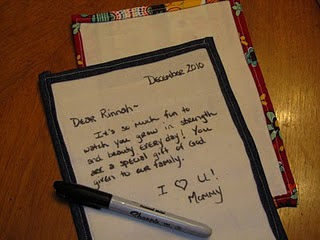 December 2010
Dear Rinnah~
It's so much fun to
watch you grow in strength
and beauty every day! You
are a special gift of God
given to our family.
I ♡ U!
Mommy
Sharpie